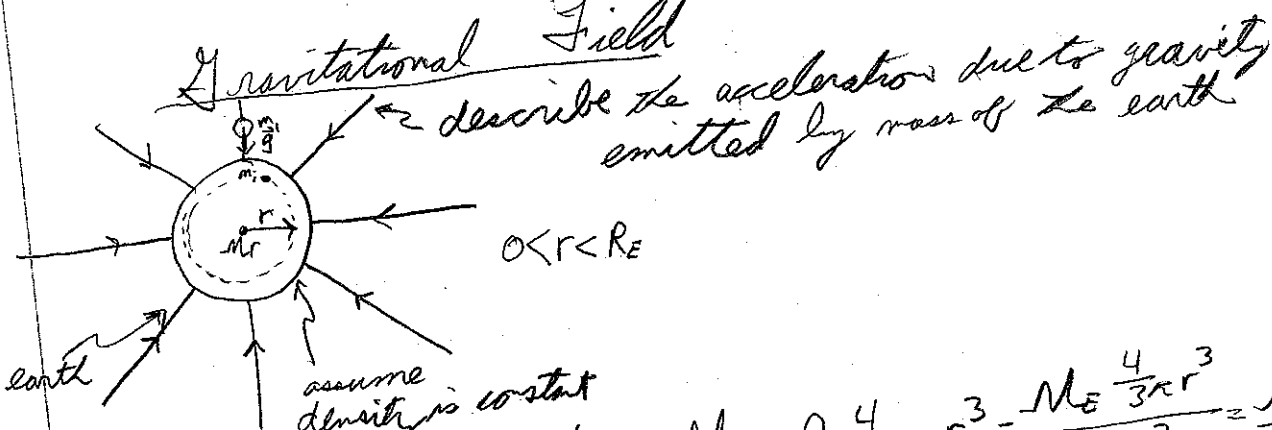 Gravitational Field
describe the acceleration due to gravity
emitted by mass of the earth
m
g
mi
r
Mr
0<r<RE
earth
assume
density is constant
4 r³ = ME 4/3 πr³ =